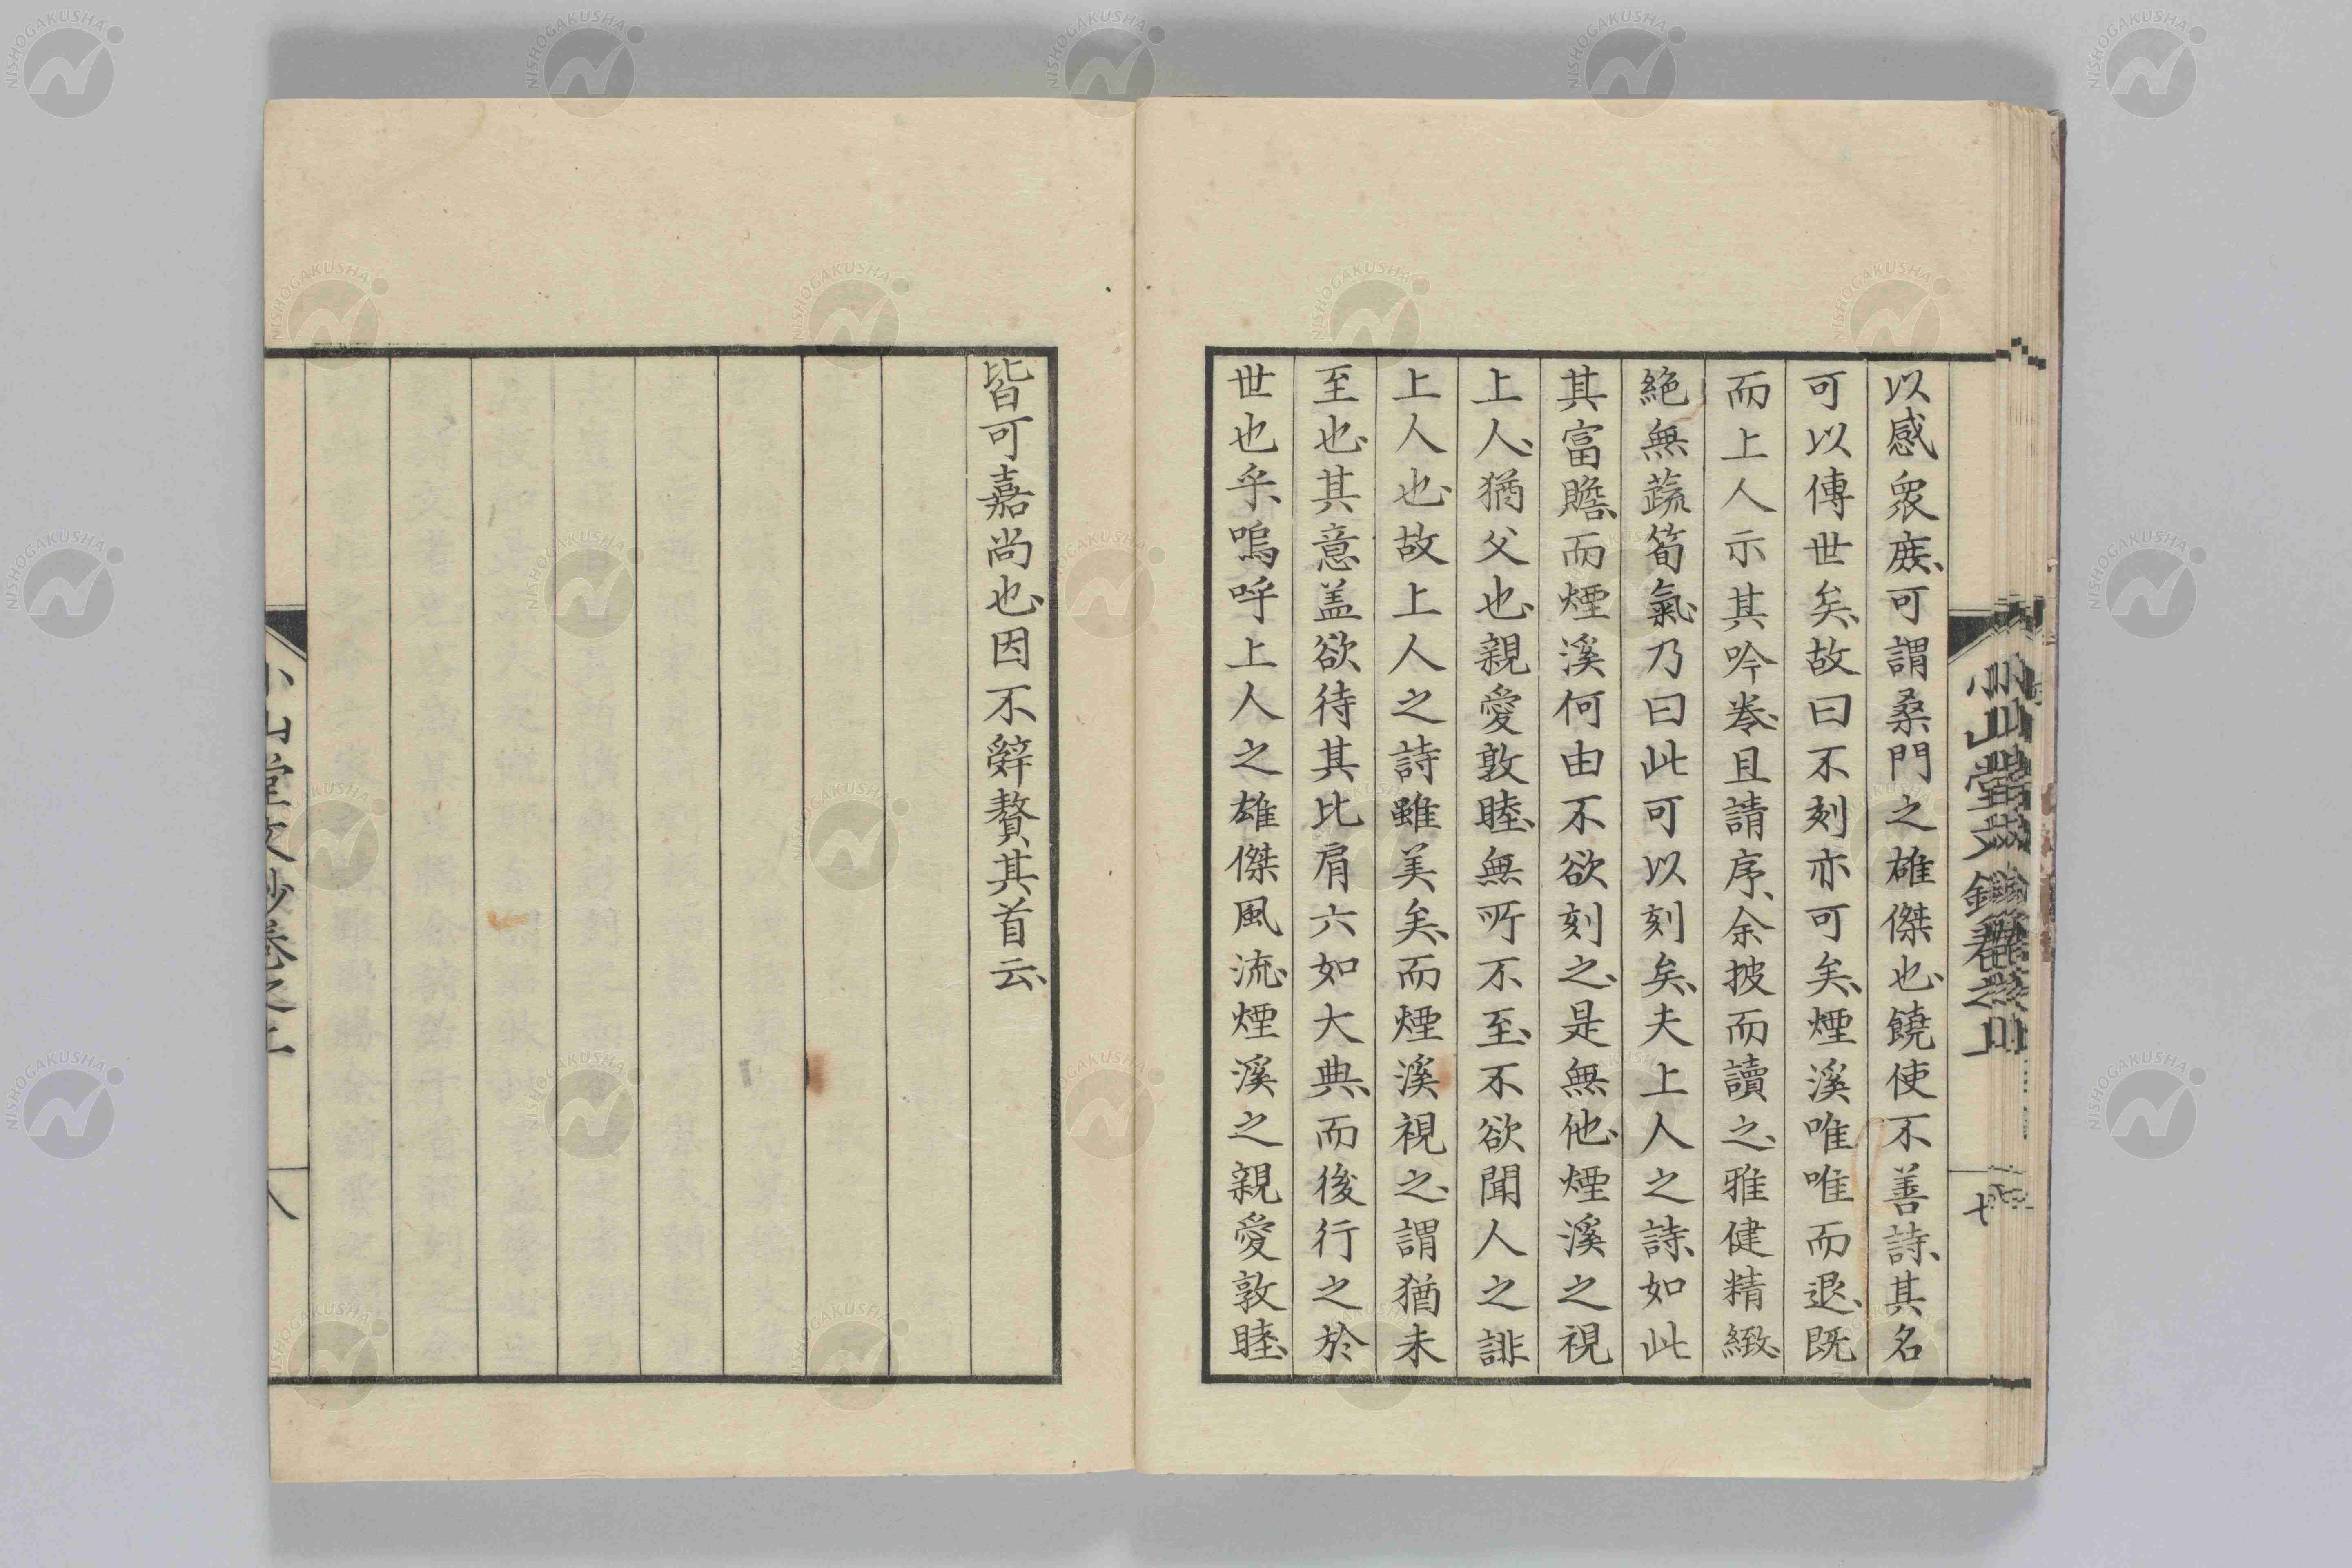 以感衆庶、可謂桑門之雄傑也、饒使不善詩、其名
可以傳世矣、故曰不刻亦可矣、煙溪唯唯而退、既
而上人示其吟卷、且請序、余披而讀之、雅健精緻、
絶無蔬筍氣、乃曰此可以刻矣、夫上人之詩、如此
其富贍、而煙溪何由不欲刻之、是無他、煙溪之視
上人、猶父也、親愛敦睦、無所不至、不欲聞人之誹
上人也、故上人之詩雖美矣、而煙溪視之、謂猶未
至也、其意蓋欲待其比肩六如大典、而後行之於
世也乎、嗚呼上人之雄傑風流、煙溪之親愛敦睦、
七
皆可嘉尚也、因不辭贅其首云、
八
NISHOGAKUSHA